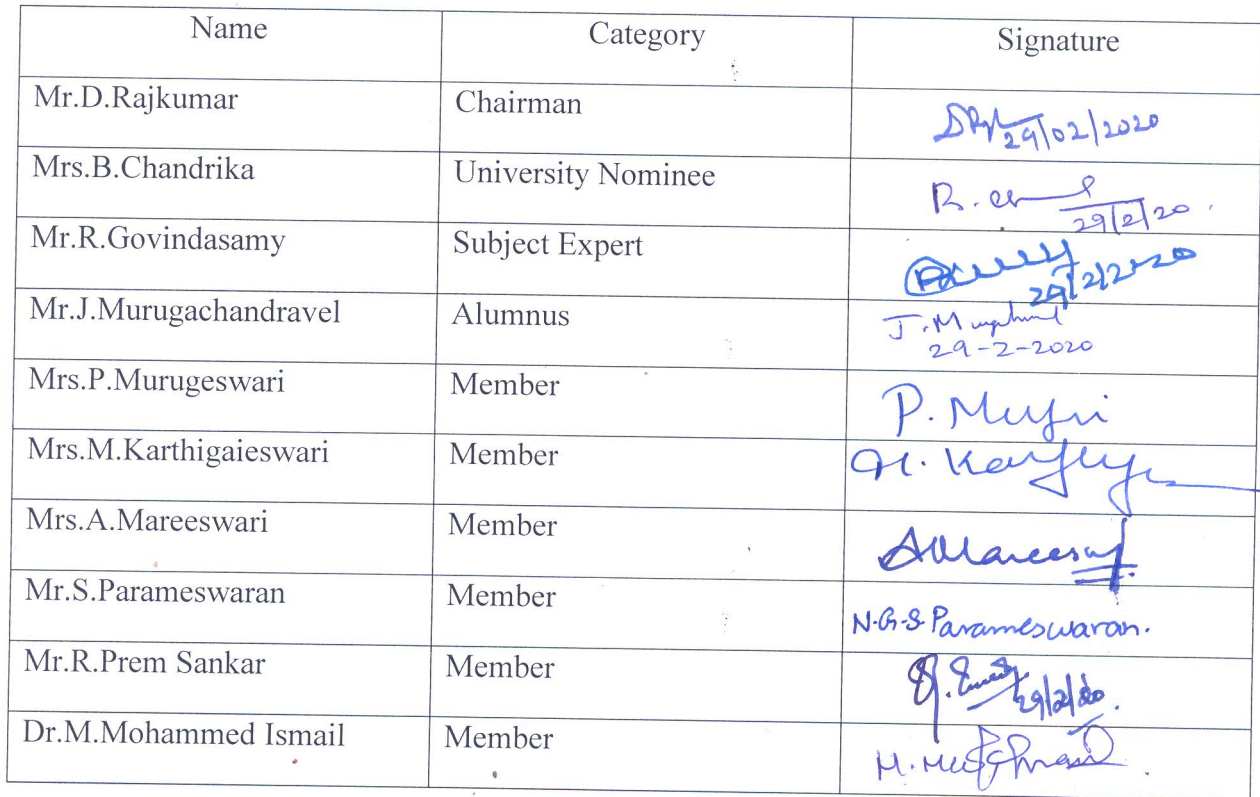 Name Category Signature
Mr.D.Rajkumar Chairman 29/02/2020
Mrs.B.Chandrika University Nominee
29/2/20.
Mr.R.Govindasamy Subject Expert
29/2/2020
Mr.J.Murugachandravel Alumnus J.
29-2-2020
Mrs.P.Murugeswari Member P.
Mrs.M.Karthigaieswari Member
Mrs.A.Mareeswari Member
Mr.S.Parameswaran Member N.G.S.Parameswaran.
Mr.R.Prem Sankar Member 29/2/20.
Dr.M.Mohammed Ismail Member M.